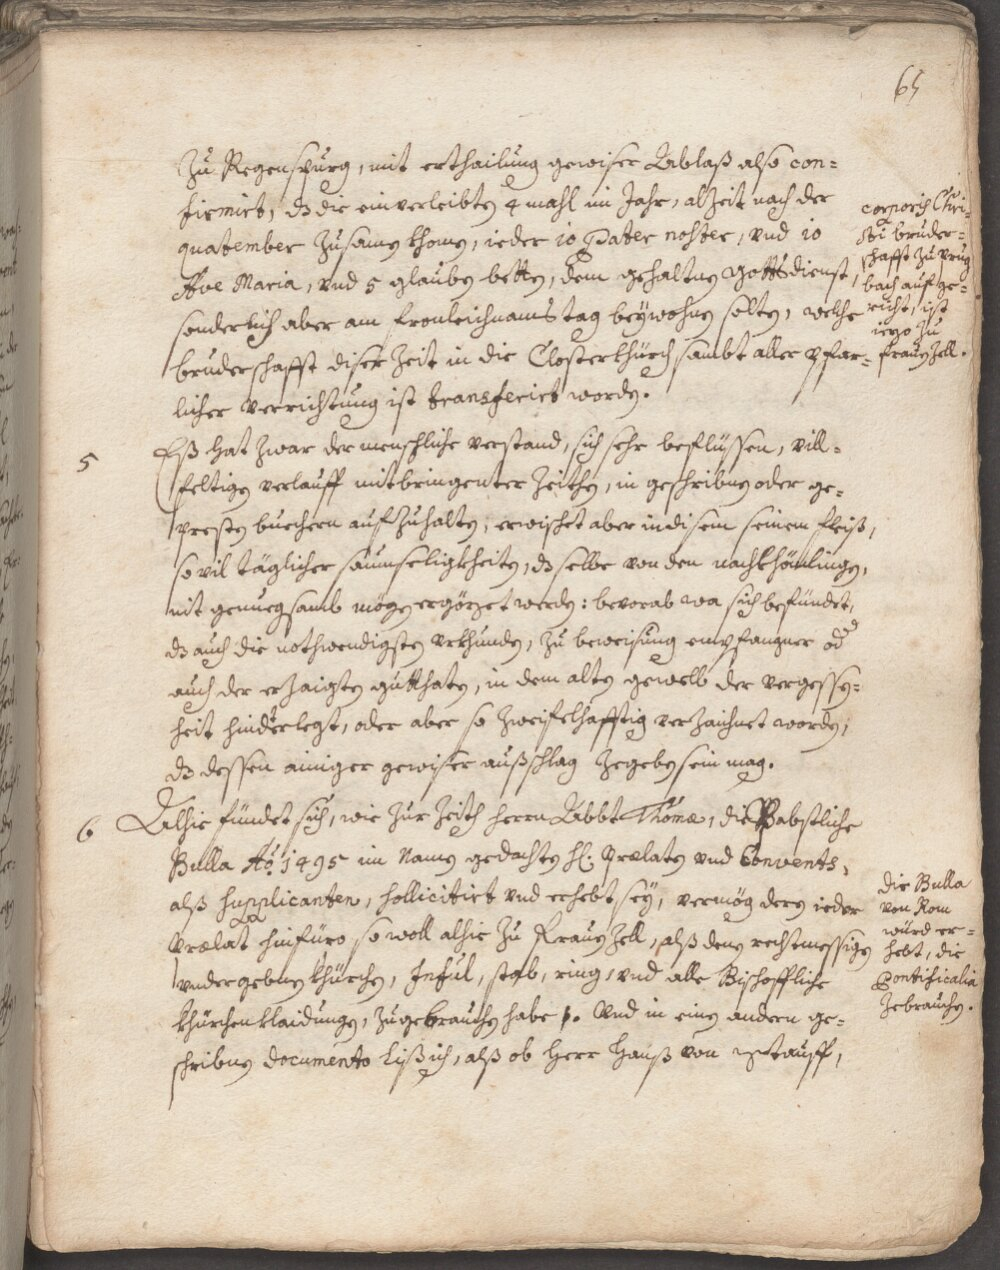 65
Zu Regenspurg, mit erthailung gewiser Ablaß also con-
firmirt, dz die einverleibten 4 mahl im Jahr, alzeit nach der
quatember zusamen khomen, ieder 10 Pater noster, vnd 10
Ave Maria, vnd 5 glauben betten, dem gehaltnen Gottsdienst,
sonderlich aber am fronleichnams tag beywohnen solten, welche
bruderschafft diser Zeit in die Closterkhürch sambt aller pfar-
licher verrichtung ist transferirt worden.
corporis Chri-
sti bruder-
schafft zu Prug
bach auf ge-
richt, ist
iezo zu
frauenzell.
5
Eß hat zwar der menschliche verstand, sich sehr beflüssen, vill-
feltigen verlauff mitbringenter Zeithen, in geschribnen oder ge-
presten buechern aufzuhalten, erwischet aber in disem seinem fleiß,
so vil täglicher saumseligkheiten, dz selbe von den nachkhömlingen,
nit genuegsamb mögen ergözet werden: bevorab wa sich befündet,
dz auch die nothwendigsten vrkhunden, zu beweisung empfangner od
auch der erzaigten gutthaten, in dem alten gewelb der vergessen-
heit hinderlegt, oder aber so zweifelhafftig verzaichnet worden,
dz dessen ainiger gewiser außschlag zegeben sein mag.
6
Alhie fündet sich, wie zur Zeith herrn Abbt Thomæ, die Pabstliche
Bulla Aõ 1495 im Namen gedachten H. Prælaten vnd Convents,
alß supplicanten, sollicitirt vnd erhebt sey, vermög deren ieder
Prælat hinfüro so woll alhie zu Frauenzell, alß denen rechtmessigen
vndergebnen khürchen, Inful, stab, ring, vnd alle Bischoffliche
khürchen klaidungen, zugebrauchen habe p. Vnd in einen andern ge-
schribnen documento liß ich, alß ob Herr Hanß von Stauff,
die Bulla
von Rom
würd er-
hebt, die
Pontificalia
zebrauchen.